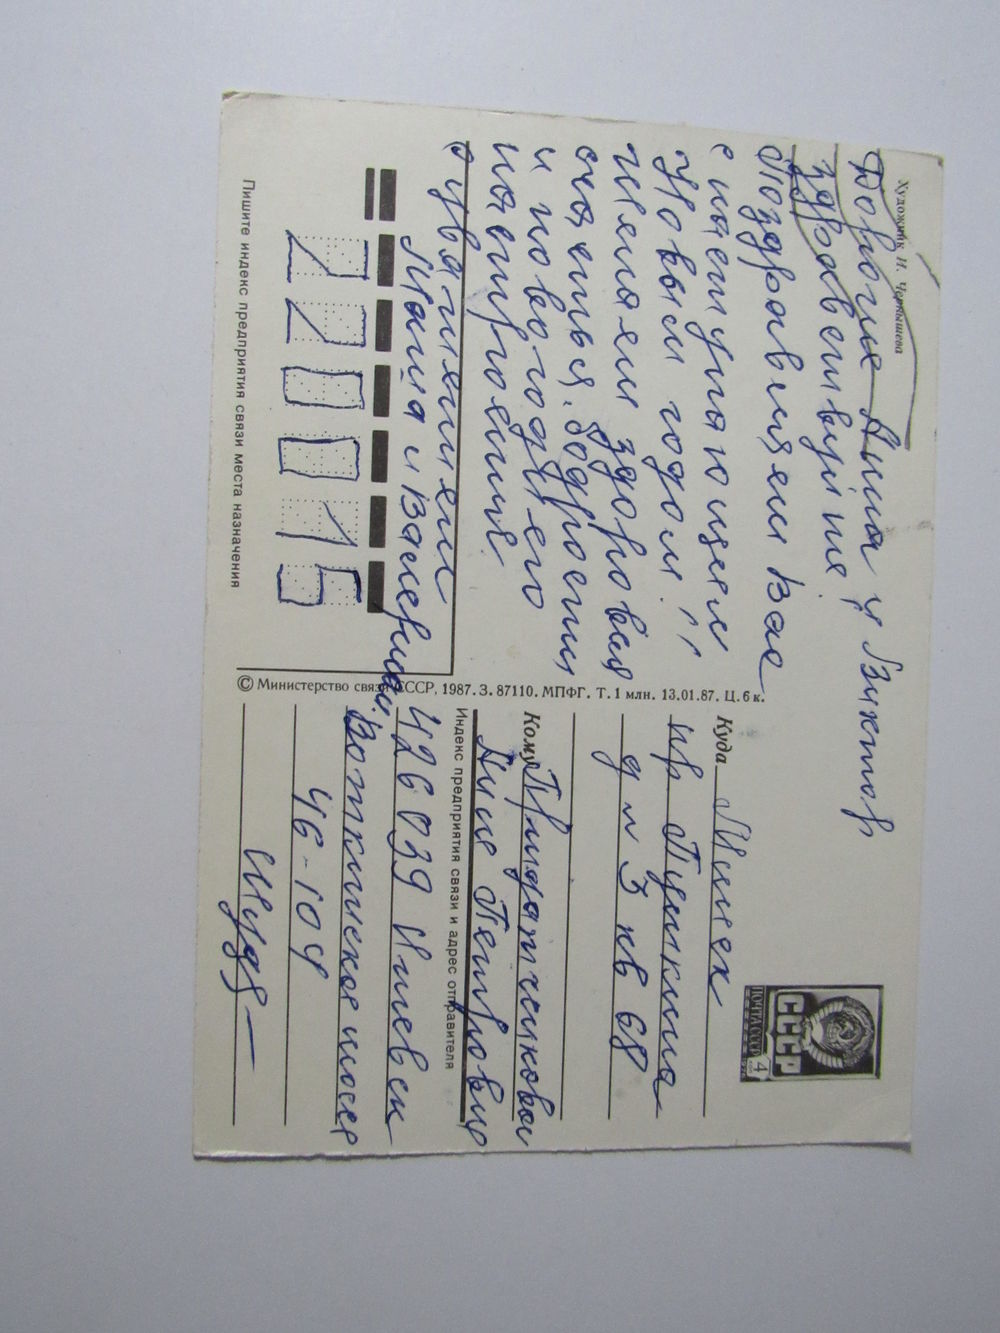 Художник И. Чернышева
Дорогие Анна и Виктор
здравствуйте!
Поздравляем Вас
с наступающим
Новым годом!
Желаем здоровья
счастья, бодрости
и новогоднего
настроения
с уважением
Маша и Валерий.
220015
Пишите индекс предприятия связи места назначения
© Министерство связи СССР, 1987. З. 87110. МПФГ. Т. 1 млн. 13.01.87. Ц. 6 к.
ПОЧТА СССР
СССР
4
Куда Минск
пр Пушкина
д 3 кв 68
Кому
Анне Петровне
Индекс предприятия связи и адрес отправителя
426039 Ижевск
Воткинское шоссе
46-104